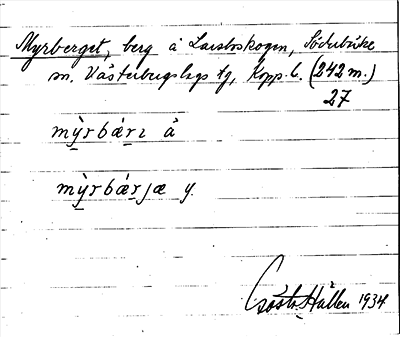 Myrberget, berg å Larsboskogen, Söderbärke
sn. Västerbergslags tg, Kopp. l. (242 m.)
27
mỳrbǽrɪ å
mỳrbǽrjæ y.
Gösta Hallén 1934